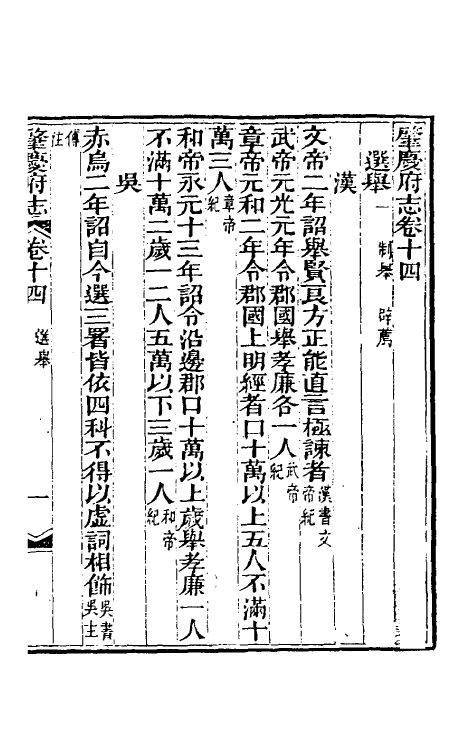 肇慶府志卷十四
選舉一 制舉 辟薦
漢
文帝二年詔舉賢良方正能直言極諫者漢書文帝紀
武帝元光元年令郡國舉孝廉各一人武帝紀
章帝元和二年令郡國上明經者口十萬以上五人不滿十
萬三人章帝紀
和帝永元十三年詔令沿邊郡口十萬以上歲舉孝廉一人
不滿十萬二歲一人五萬以下三歲一人和帝紀
吳
赤烏二年詔自今選三署皆依四科不得以虛詞相飾吳書吳主
傳注
肇慶府志 卷十四 選舉 一